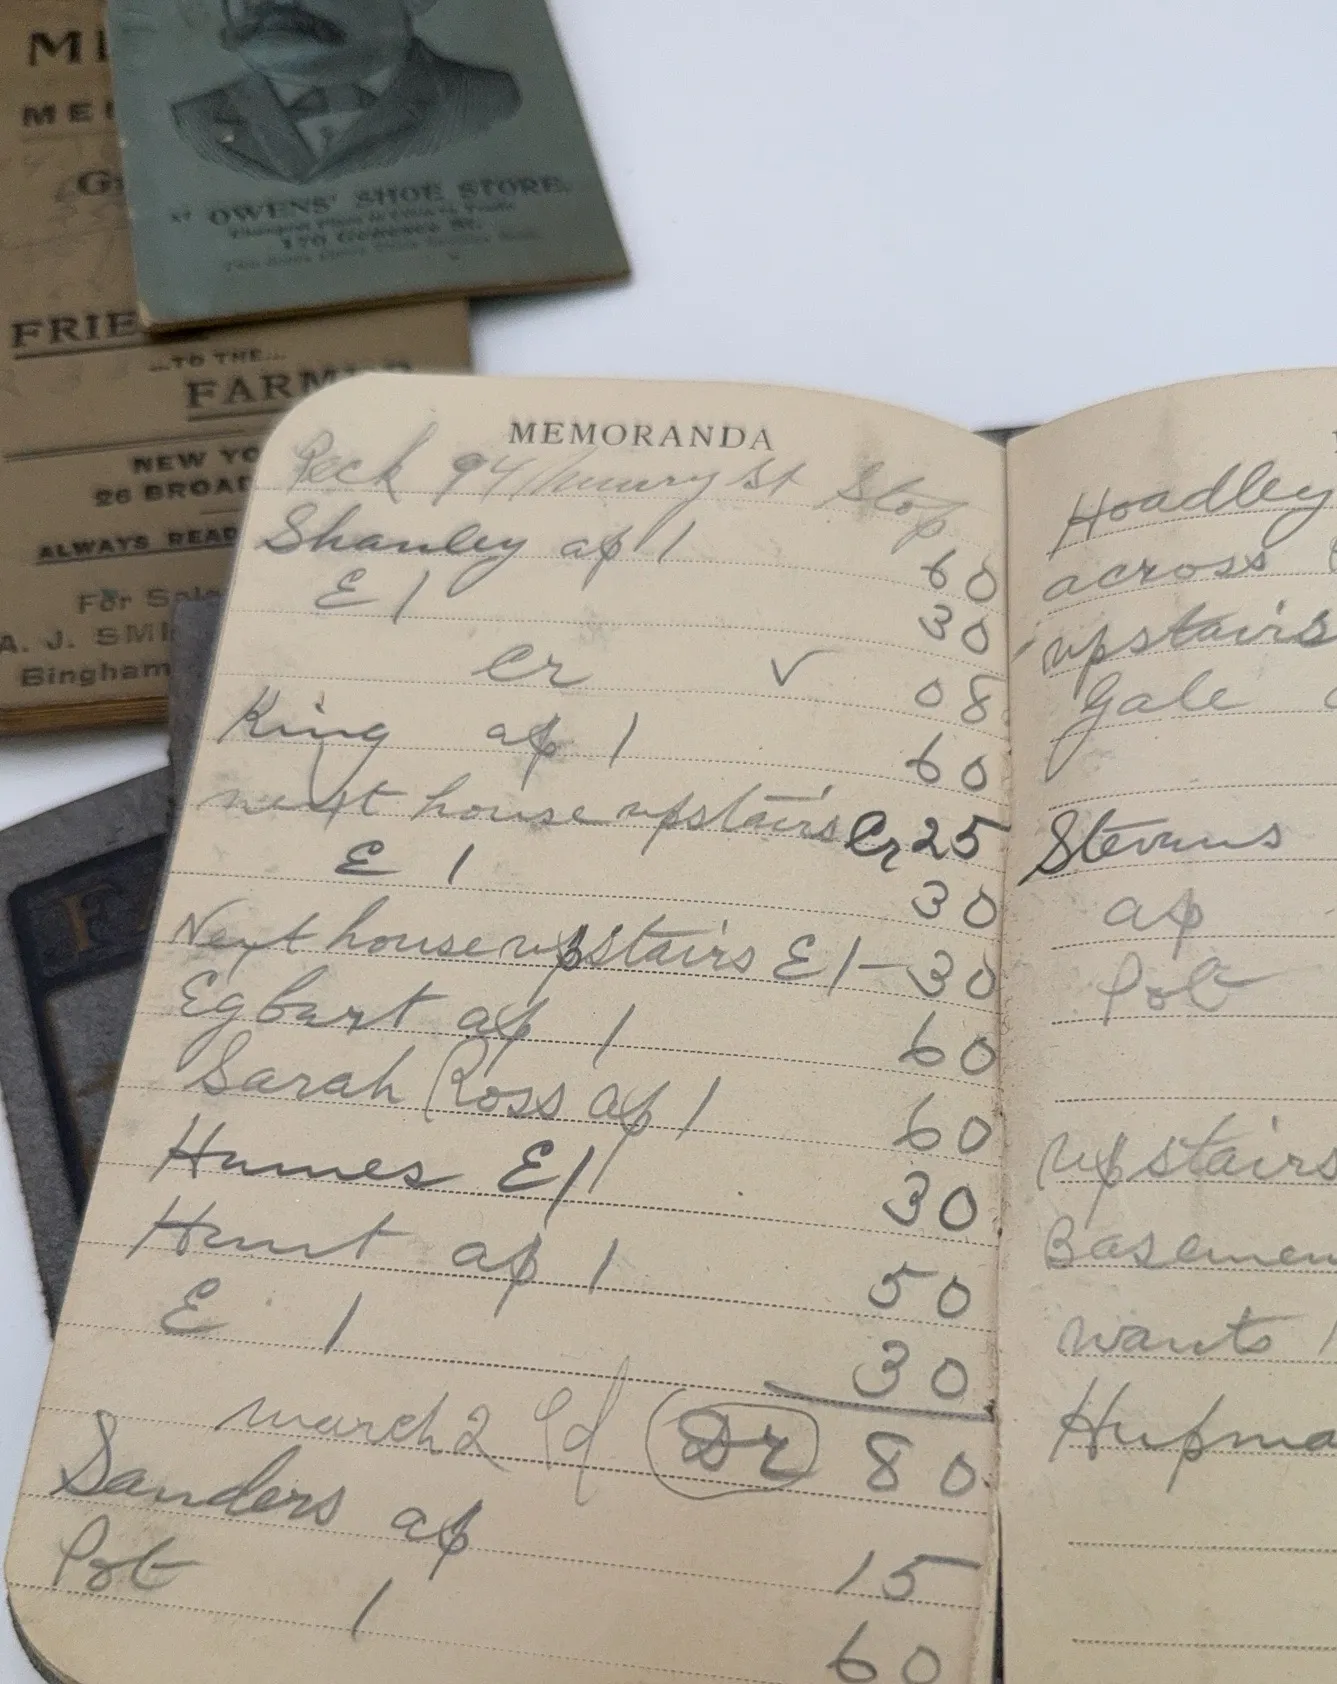 ME
G
FRIE
...TO THE...
FARMER
NEW YO
26 BROAD
ALWAYS READ
For Sale
A. J. SMI
Bingham
AT OWENS' SHOE STORE.
170 Genesee St.
F
MEMORANDA
Peck 94 St Stop
Shanley ap 1 60
E 1 30
Cr ✓ 08
King ap 1 60
next house upstairs Cr 25
E 1 30
Next house upstairs E 1 - 30
Egburt ap 1 60
Sarah Ross ap 1 60
Humes E 1 30
Hunt ap 1 50
E 1 30
march 2 Pd Dr 80
Sanders ap 15
Pot 1 60
Hoadley
across
upstairs
Gale
Stevens
ap
Pot
upstairs
Basemen
wants 1
Hupma